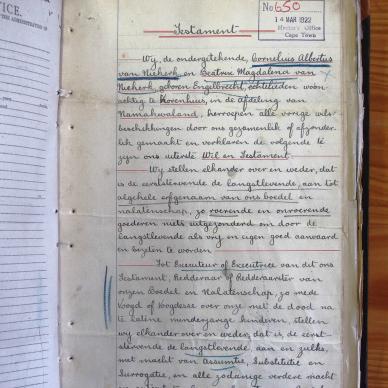 ICE.
No 650
14 MAR 1922
Masters Office
Cape Town
Testament
Wij, de ondergetekende, Cornelius Albertus
van Niekerk en Beatrix Magdalena van
Niekerk, geboren Engelbrecht, echtelieden woon-
achtig te Korenhuis, in de afdeling van
Namakwaland, herroepen alle vorige wils-
beschikkingen door ons gezamenlik of afzonder-
lik gemaakt en verklaren de volgende te
zijn ons uiterste Wil en Testament.
Wij stellen elkander over en weder, dat
is de eerststervende de langstlevende, aan tot
algehele erfgenaam van ons boedel en
nalatenschap, zo roerende en onroerende
goederen niets uitgezonderd om door de
langstlevende als vrij en eigen goed aanvaard
en bezeten te worden.
Tot Executeur of Executrice van dit ons
Testament, Redderaar of Redderaarster van
onzen Boedel en Nalatenschap, zo mede
Voogd of Voogdesse over onze met de dood na
te latene minderjarige kinderen, stellen
wij elkander over en weder, dat is de eerst-
stervende de langstlevende, aan en zulks,
met macht van Assumtie, Substitutie en
Surrogatie, en alle zodanige verdere macht